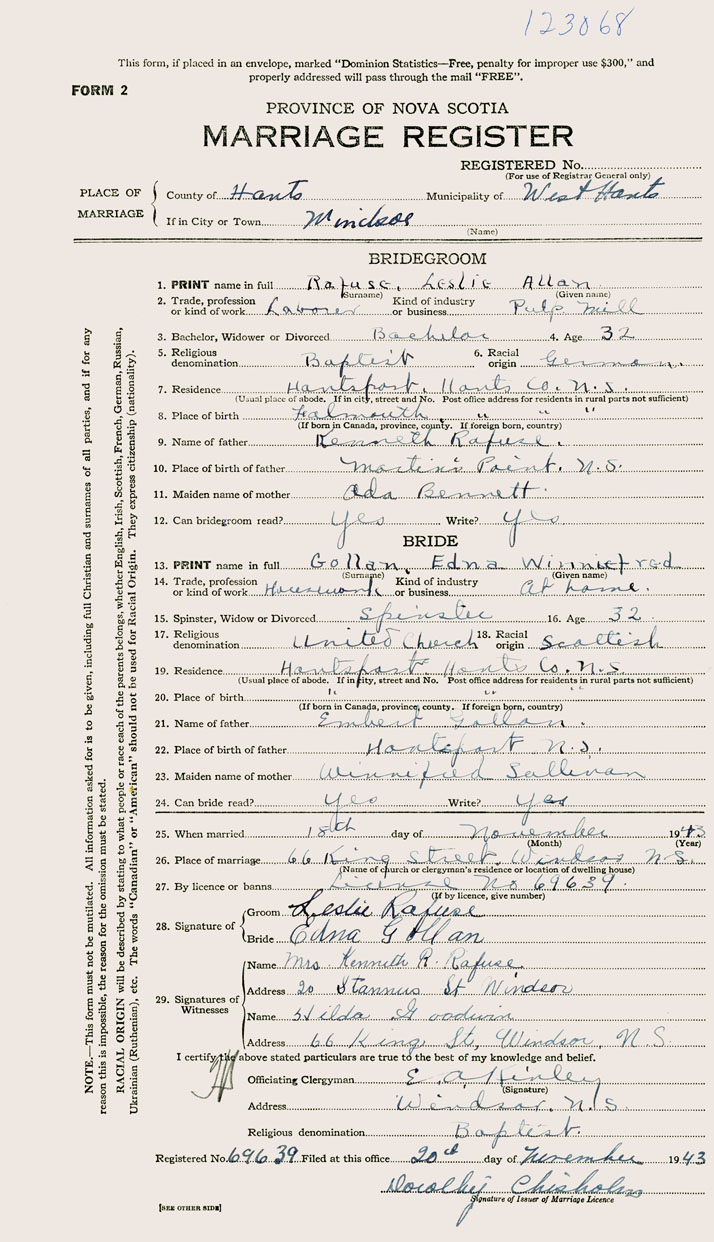 123068
This form, if placed in an envelope, marked "Dominion Statistics—Free, penalty for improper use $300," and
properly addressed will pass through the mail "FREE".
FORM 2
PROVINCE OF NOVA SCOTIA
MARRIAGE REGISTER
REGISTERED No.
(For use of Registrar General only)
PLACE OF MARRIAGE
County of Hants Municipality of West Hants
If in City or Town Windsor
(Name)
BRIDEGROOM
1. PRINT name in full Rafuse, Leslie Allan
(Surname) (Given name)
2. Trade, profession or kind of work Laborer Kind of industry or business Pulp Mill
3. Bachelor, Widower or Divorced Bachelor 4. Age 32
5. Religious denomination Baptist 6. Racial origin German.
7. Residence Hantsport, Hants Co. N.S.
(Usual place of abode. If in city, street and No. Post office address for residents in rural parts not sufficient)
8. Place of birth Falmouth " " "
(If born in Canada, province, county. If foreign born, country)
9. Name of father Kenneth Rafuse.
10. Place of birth of father Martin's Point, N.S.
11. Maiden name of mother Ada Bennett.
12. Can bridegroom read? Yes Write? Yes
BRIDE
13. PRINT name in full Gollan, Edna Winniefred
(Surname) (Given name)
14. Trade, profession or kind of work Housework Kind of industry or business At home.
15. Spinster, Widow or Divorced Spinster 16. Age 32
17. Religious denomination United Church 18. Racial origin Scottish
19. Residence Hantsport, Hants Co. N.S.
(Usual place of abode. If in city, street and No. Post office address for residents in rural parts not sufficient)
20. Place of birth " " "
(If born in Canada, province, county. If foreign born, country)
21. Name of father Embert Gollan.
22. Place of birth of father Hantsport N.S.
23. Maiden name of mother Winnifred Sullivan
24. Can bride read? Yes Write? Yes
25. When married 18th day of November 1943
(Month) (Year)
26. Place of marriage 66 King Street, Windsor N.S.
(Name of church or clergyman's residence or location of dwelling house)
27. By licence or banns License No 69639.
(If by licence, give number)
28. Signature of
Groom Leslie Rafuse
Bride Edna Gollan
29. Signatures of Witnesses
Name Mrs. Kenneth R. Rafuse
Address 20 Stannus St Windsor
Name Hilda Goodwin
Address 66 King St, Windsor, N S.
I certify the above stated particulars are true to the best of my knowledge and belief.
Officiating Clergyman E. A. Kinley
(Signature)
Address Windsor, N.S.
Religious denomination Baptist.
Registered No. 69639 Filed at this office 20th day of November 1943
Dorothy Chisholm
Signature of Issuer of Marriage Licence
[SEE OTHER SIDE]
NOTE.—This form must not be mutilated. All information asked for is to be given, including full Christian and surnames of all parties, and if for any
reason this is impossible, the reason for the omission must be stated.
RACIAL ORIGIN will be described by stating to what people or race each of the parents belongs, whether English, Irish, Scottish, French, German, Russian,
Ukrainian (Ruthenian), etc. The words "Canadian" or "American" should not be used for Racial Origin. They express citizenship (nationality).